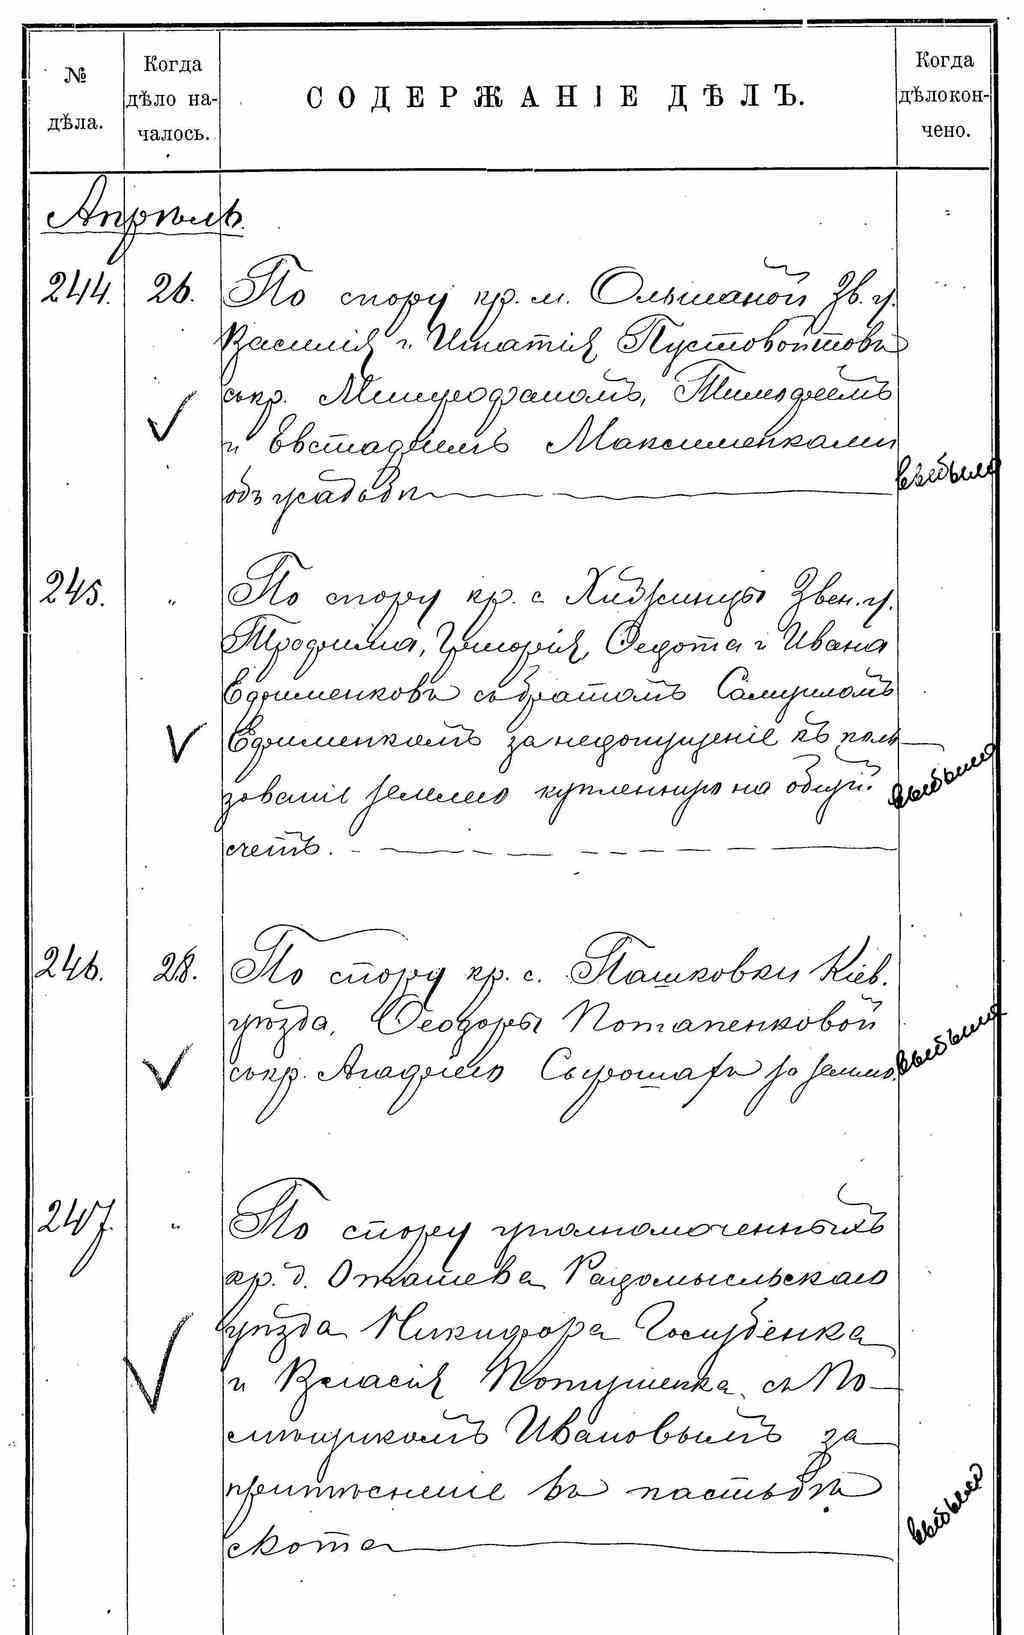 № дѣла.
Когда дѣло на-
чалось.
СОДЕРЖАНІЕ ДѢЛЪ.
Когда
дѣло кон-
чено.
Апрѣль.
244. 26. По спору кр. м. Ольшаной Зв. у.
Василія и Игнатія Пустовойтовъ
съ кр. Митрофаномъ, Тимофеемъ
и Евстафіемъ Максименками
объ усадьбѣ
выбыло
245. " По спору кр. с. Хижинцы Звен. у.
Трофима, Григорія, Федота и Ивана
Ефименковъ съ братомъ Самуиломъ
Ефименкомъ за недопущеніе къ поль-
зованію землею купленную на общій
счетъ.
выбыло
246. 28. По спору кр. с. Пашковки Кіев.
уѣзда, Феодоры Потапенковой
съ кр. Агафіею за землю.
выбыло
247. " По спору уполномоченныхъ
кр. д. Осташева Радомысльскаго
уѣзда Никифора Голубенка
и Власія с По-
мѣщикомъ Ивановымъ за
притѣсненіе въ пастьбѣ
скота
выбыло